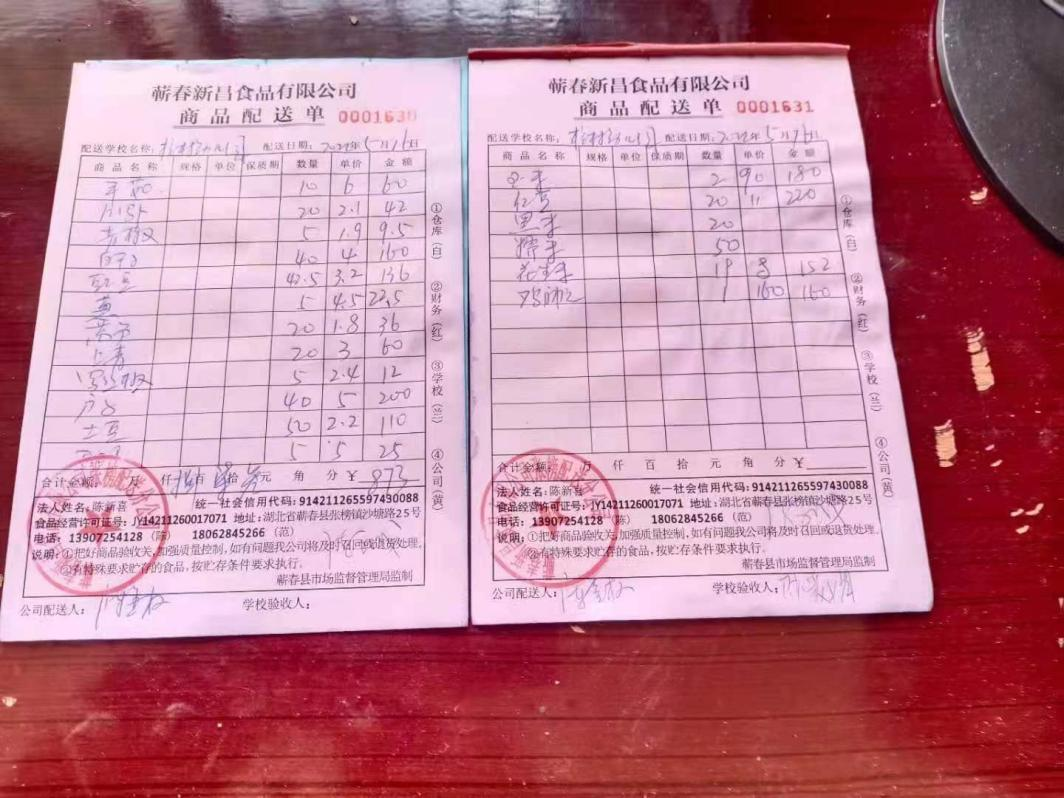 蕲春新昌食品有限公司
商品配送单 0001630
配送学校名称： 配送日期：2022年5月16日
商品名称 规格 单位 保质期 数量 单价 金额
10 6 60
20 2.1 42
青椒 5 1.9 9.5
40 4 160
豇豆 42.5 3.2 136
5 4.5 22.5
20 1.8 36
上青 20 3 60
5 2.4 12
40 5 200
土豆 50 2.2 110
5 5 25
合计金额： 万 仟 百 拾 元 角 分 ￥ 873
法人姓名：陈新喜 统一社会信用代码：914211265597430088
食品经营许可证号：JY14211260017071 地址：湖北省蕲春县张榜镇沙塘路25号
电话：13907254128（陈） 18062845266（范）
说明：①把好商品验收关，加强质量控制，如有问题我公司将及时召回或退货处理。
②有特殊要求贮存的食品，按贮存条件要求执行。
蕲春县市场监督管理局监制
公司配送人： 学校验收人：
①仓库（白） ②财务（红） ③学校（兰） ④公司（黄）
蕲春新昌食品有限公司
商品配送单 0001631
配送学校名称： 配送日期：2022年5月16日
商品名称 规格 单位 保质期 数量 单价 金额
2 90 180
红豆 20 11 220
黑米 20
糯米 50
花生米 19 8 152
1 160 160
合计金额： 万 仟 百 拾 元 角 分 ￥
法人姓名：陈新喜 统一社会信用代码：914211265597430088
食品经营许可证号：JY14211260017071 地址：湖北省蕲春县张榜镇沙塘路25号
电话：13907254128（陈） 18062845266（范）
说明：①把好商品验收关，加强质量控制，如有问题我公司将及时召回或退货处理。
②有特殊要求贮存的食品，按贮存条件要求执行。
蕲春县市场监督管理局监制
公司配送人： 学校验收人：
①仓库（白） ②财务（红） ③学校（兰） ④公司（黄）